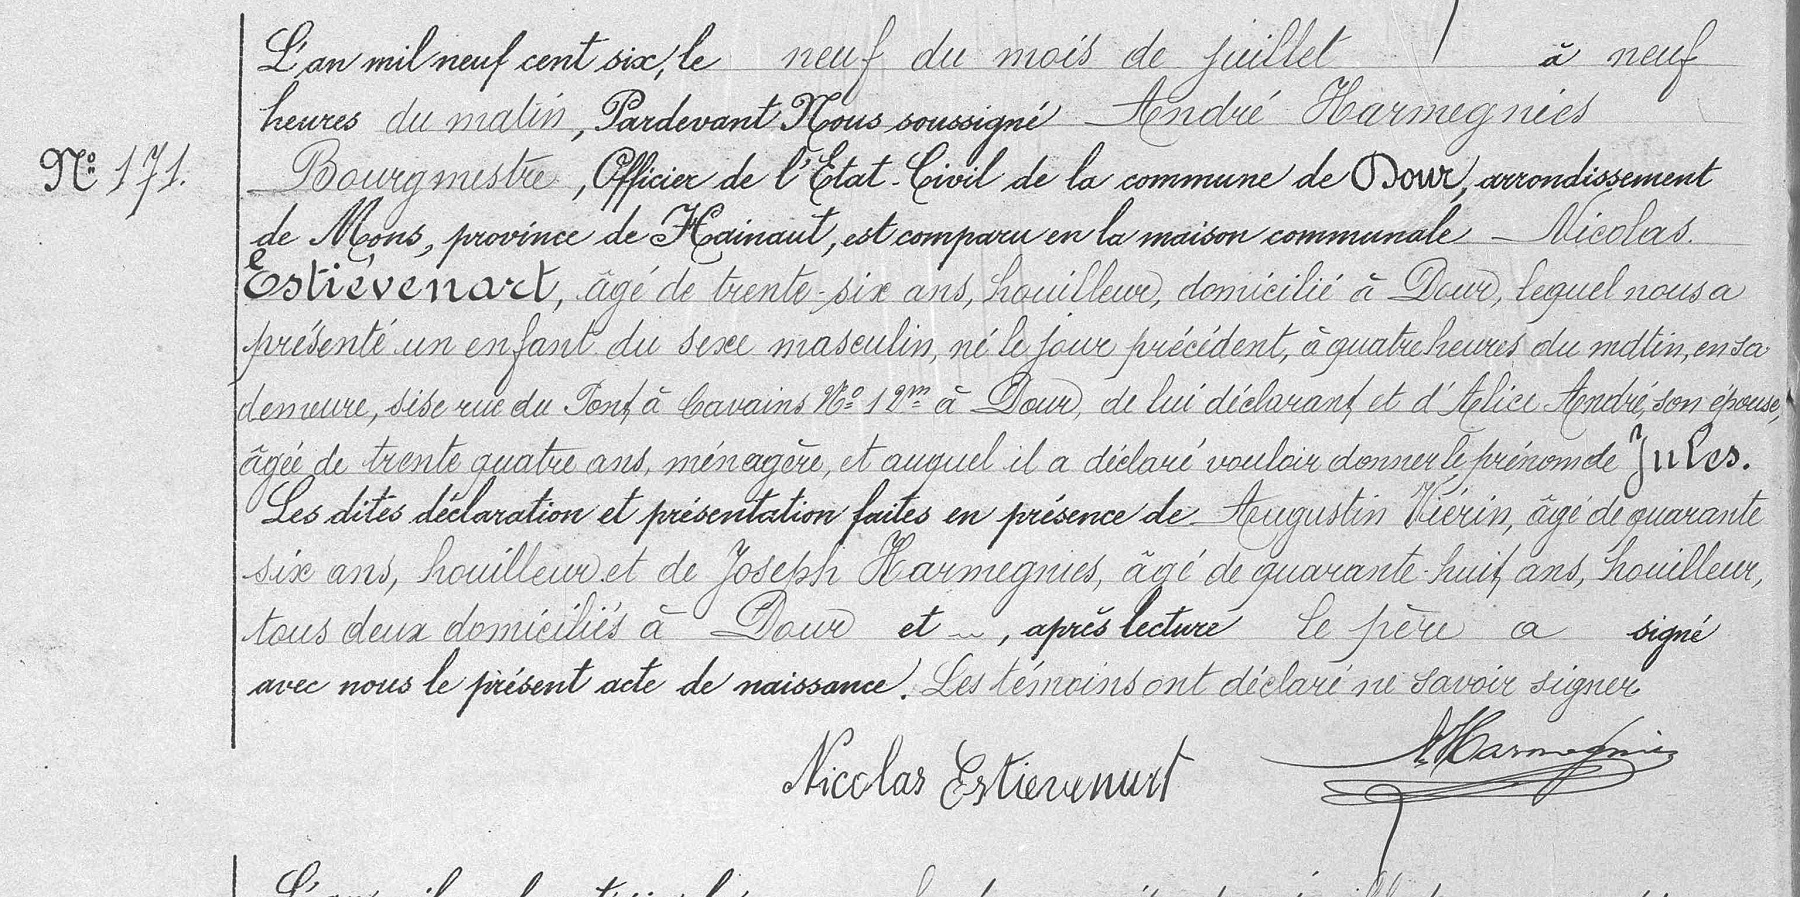 L'an mil neuf cent six, le neuf du mois de juillet à neuf
heures du matin, Pardevant Nous soussigné André Harmegnies
N° 171. Bourgmestre, Officier de l'Etat-Civil de la commune de Dour, arrondissement
de Mons, province de Hainaut, est comparu en la maison communale Nicolas
Estiévenart, âgé de trente-six ans, houilleur, domicilié à Dour, lequel nous a
présenté un enfant du sexe masculin, né le jour précédent, à quatre heures du matin, en sa
demeure, sise rue du Pont à Cavains N° 12m à Dour, de lui déclarant et d'Alice André, son épouse,
âgée de trente quatre ans, ménagère, et auquel il a déclaré vouloir donner le prénom de Jules.
Les dites déclaration et présentation faites en présence de Augustin Viérin, âgé de quarante
six ans, houilleur et de Joseph Harmegnies, âgé de quarante-huit ans, houilleur,
tous deux domiciliés à Dour et , après lecture le père a signé
avec nous le présent acte de naissance. Les témoins ont déclaré ne savoir signer
Nicolas Estievenart AHarmegnies